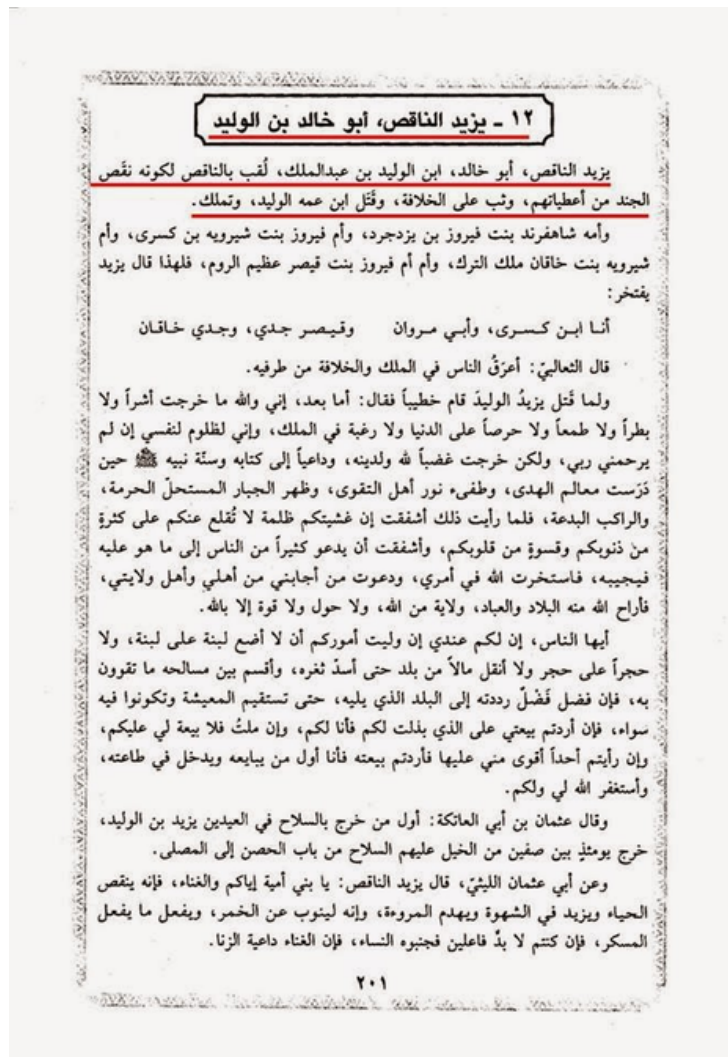 ١٢ - يزيد الناقص، أبو خالد بن الوليد
يزيد الناقص، أبو خالد، ابن الوليد بن عبدالملك، لُقب بالناقص لكونه نقَص
الجند من أعطياتهم، وثب على الخلافة، وقَتَل ابن عمه الوليد، وتملك.
وأمه شاهفرند بنت فيروز بن يزدجرد، وأم فيروز بنت شيرويه بن كسرى، وأم
شيرويه بنت خاقان ملك الترك، وأم أم فيروز بنت قيصر عظيم الروم، فلهذا قال يزيد
يفتخر:
أنا ابن كسرى، وأبي مروان وقيصر جدي، وجدي خاقان
قال الثعالبيّ: أعرَقُ الناس في الملك والخلافة من طرفيه.
ولما قَتل يزيدُ الوليدَ قام خطيباً فقال: أما بعد، إني والله ما خرجت أشراً ولا
بطراً ولا طمعاً ولا حرصاً على الدنيا ولا رغبة في الملك، وإني لظلوم لنفسي إن لم
يرحمني ربي، ولكن خرجت غضباً لله ولدينه، وداعياً إلى كتابه وسنّة نبيه ﷺ حين
دَرَست معالم الهدى، وطفىء نور أهل التقوى، وظهر الجبار المستحلّ الحرمة،
والراكب البدعة، فلما رأيت ذلك أشفقت إن غشيتكم ظلمة لا تُقلع عنكم على كثرةٍ
من ذنوبكم وقسوةٍ من قلوبكم، وأشفقت أن يدعو كثيراً من الناس إلى ما هو عليه
فيجيبه، فاستخرت الله في أمري، ودعوت من أجابني من أهلي وأهل ولايتي،
فأراح الله منه البلاد والعباد، ولاية من الله، ولا حول ولا قوة إلا بالله.
أيها الناس، إن لكم عندي إن وليت أموركم أن لا أضع لبنة على لبنة، ولا
حجراً على حجر ولا أنقل مالاً من بلد حتى أسدّ ثغره، وأقسم بين مسالحه ما تقوون
به، فإن فضل فَضْلٌ رددته إلى البلد الذي يليه، حتى تستقيم المعيشة وتكونوا فيه
سواء، فإن أردتم بيعتي على الذي بذلت لكم فأنا لكم، وإن ملتُ فلا بيعة لي عليكم،
وإن رأيتم أحداً أقوى مني عليها فأردتم بيعته فأنا أول من يبايعه ويدخل في طاعته،
وأستغفر الله لي ولكم.
وقال عثمان بن أبي العاتكة: أول من خرج بالسلاح في العيدين يزيد بن الوليد،
خرج يومئذٍ بين صفين من الخيل عليهم السلاح من باب الحصن إلى المصلى.
وعن أبي عثمان الليثيّ، قال يزيد الناقص: يا بني أمية إياكم والغناء، فإنه ينقص
الحياء ويزيد في الشهوة ويهدم المروءة، وإنه لينوب عن الخمر، ويفعل ما يفعل
المسكر، فإن كنتم لا بدَّ فاعلين فجنبوه النساء، فإن الغناء داعية الزنا.
٢٠١